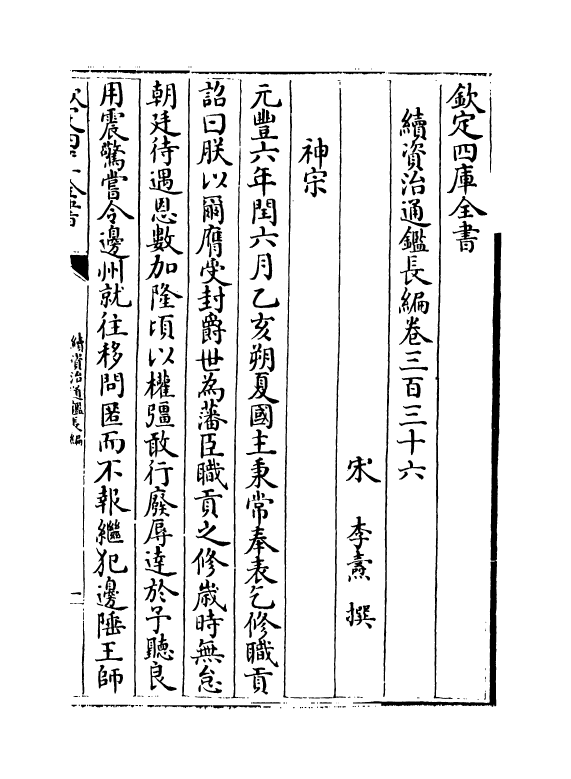 欽定四庫全書
續資治通鑑長編卷三百三十六
宋 李燾 撰
神宗
元豐六年閏六月乙亥朔夏國主秉常奉表乞修職貢
詔曰朕以爾膺受封爵世為藩臣職貢之修歲時無怠
朝廷待遇恩數加隆頃以權彊敢行廢辱達於予聽良
用震驚嘗令邊州就往移問匿而不報繼犯邊陲王師
續資治通鑑長編
一